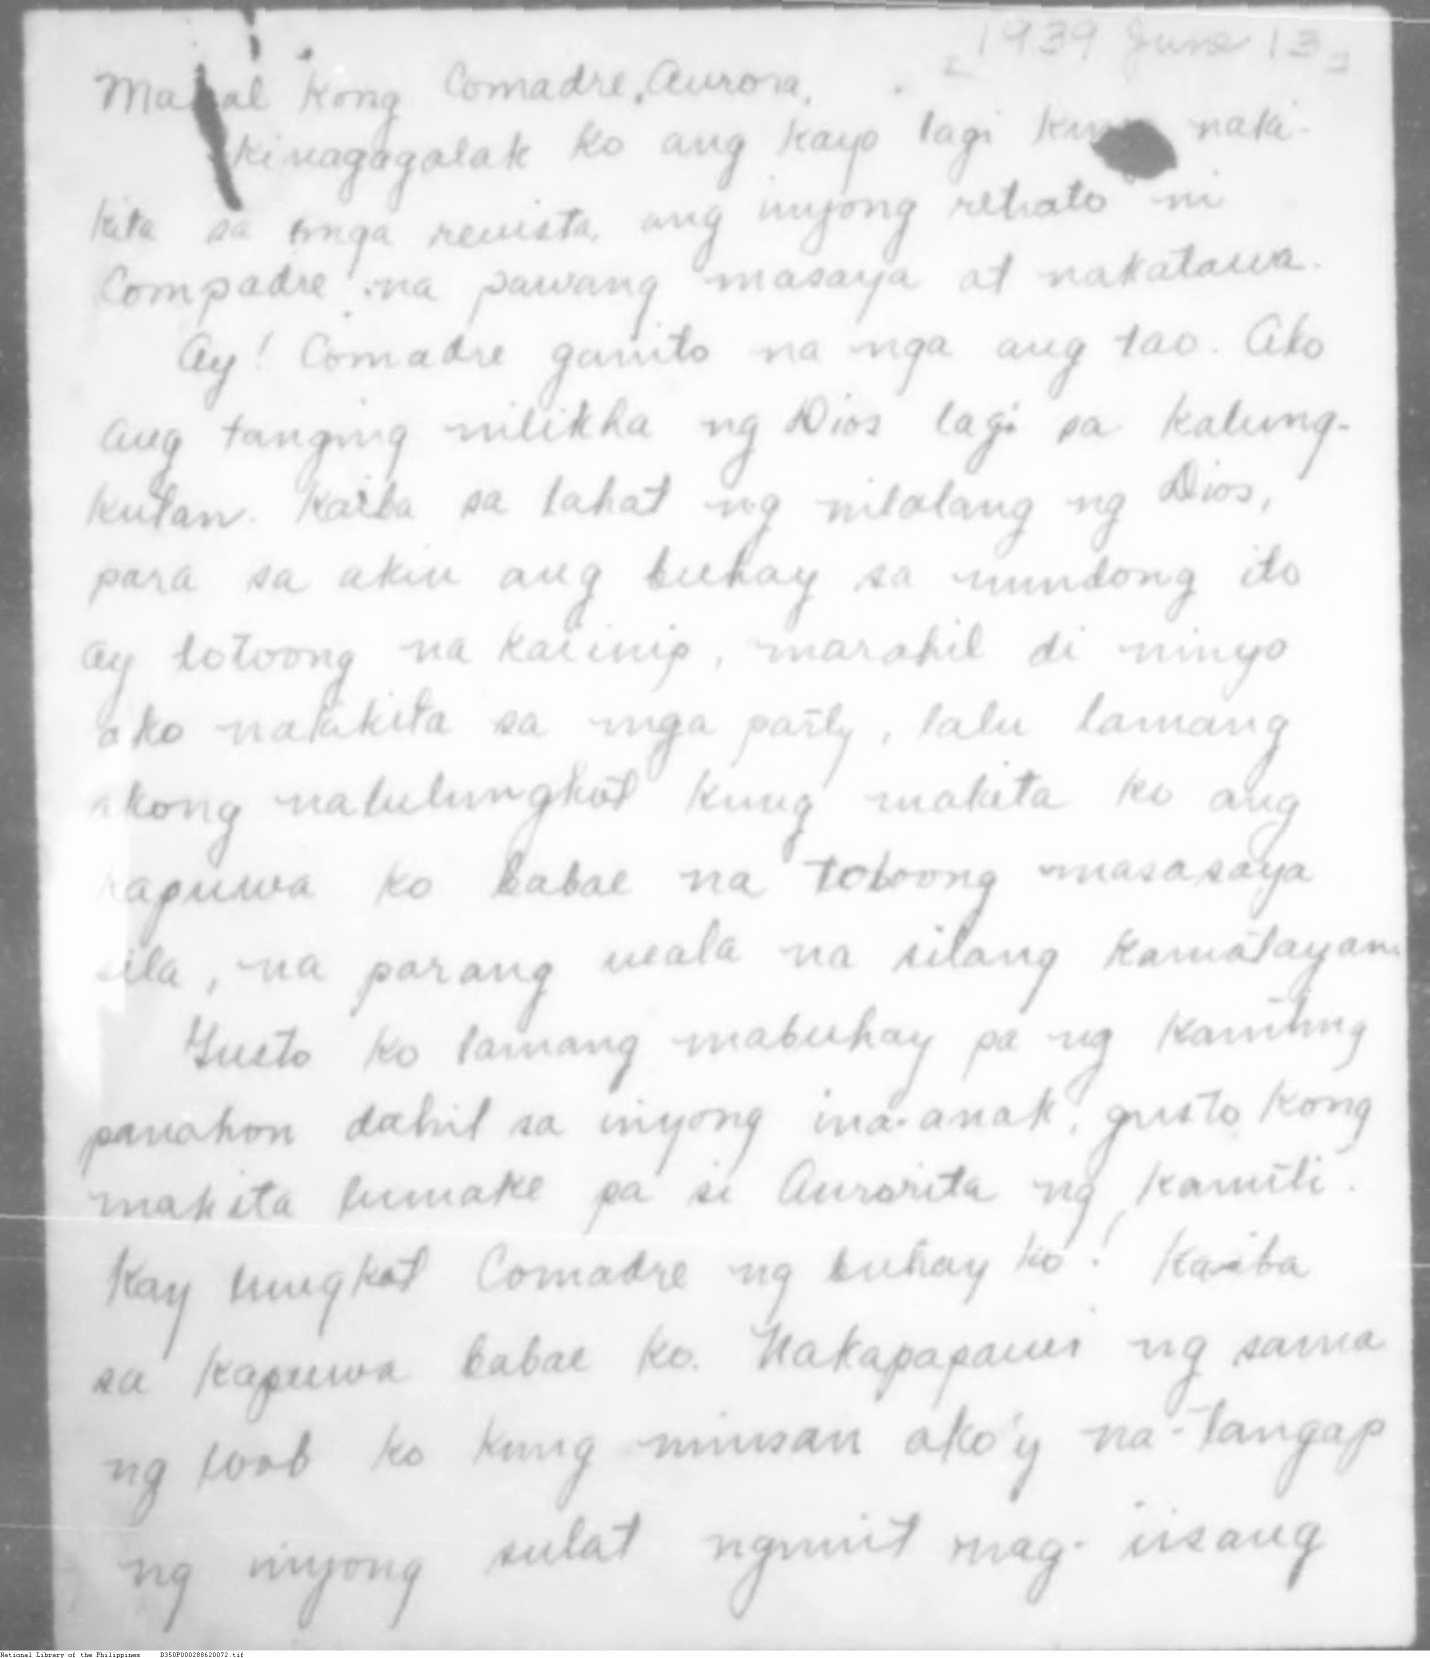 1939 June 13
Mahal Kong Comadre, Aurora,
Kinagagalak ko ang kayo lagi kung naki-
kita sa mga revista, ang inyong retrato ni
Compadre na pawang masaya at nakatawa.
Ay! Comadre ganito na nga ang tao. Ako
ang tanging nilikha ng Dios lagi sa kalung-
kutan. Kaiba sa lahat ng nilalang ng Dios,
para sa akin ang buhay sa mundong ito
ay totoong na kaiinip, marahil di ninyo
ako nakikita sa mga party, lalu lamang
akong nalulungkot kung makita ko ang
kapuwa ko babae na totoong masasaya
sila, na parang wala na silang kamatayan.
Gusto ko lamang mabuhay pa ng kaniting
panahon dahil sa inyong ina-anak, gusto kong
makita lumake pa si Aurorita ng kaunti.
Kay lungkot Comadre ng buhay ko! Kaiba
sa kapuwa babae ko. Nakapapawi ng sama
ng loob ko kung minsan ako'y na-tangap
ng inyong sulat ngunit mag-iisang
National Library of the Philippines D350P000288620072.tif